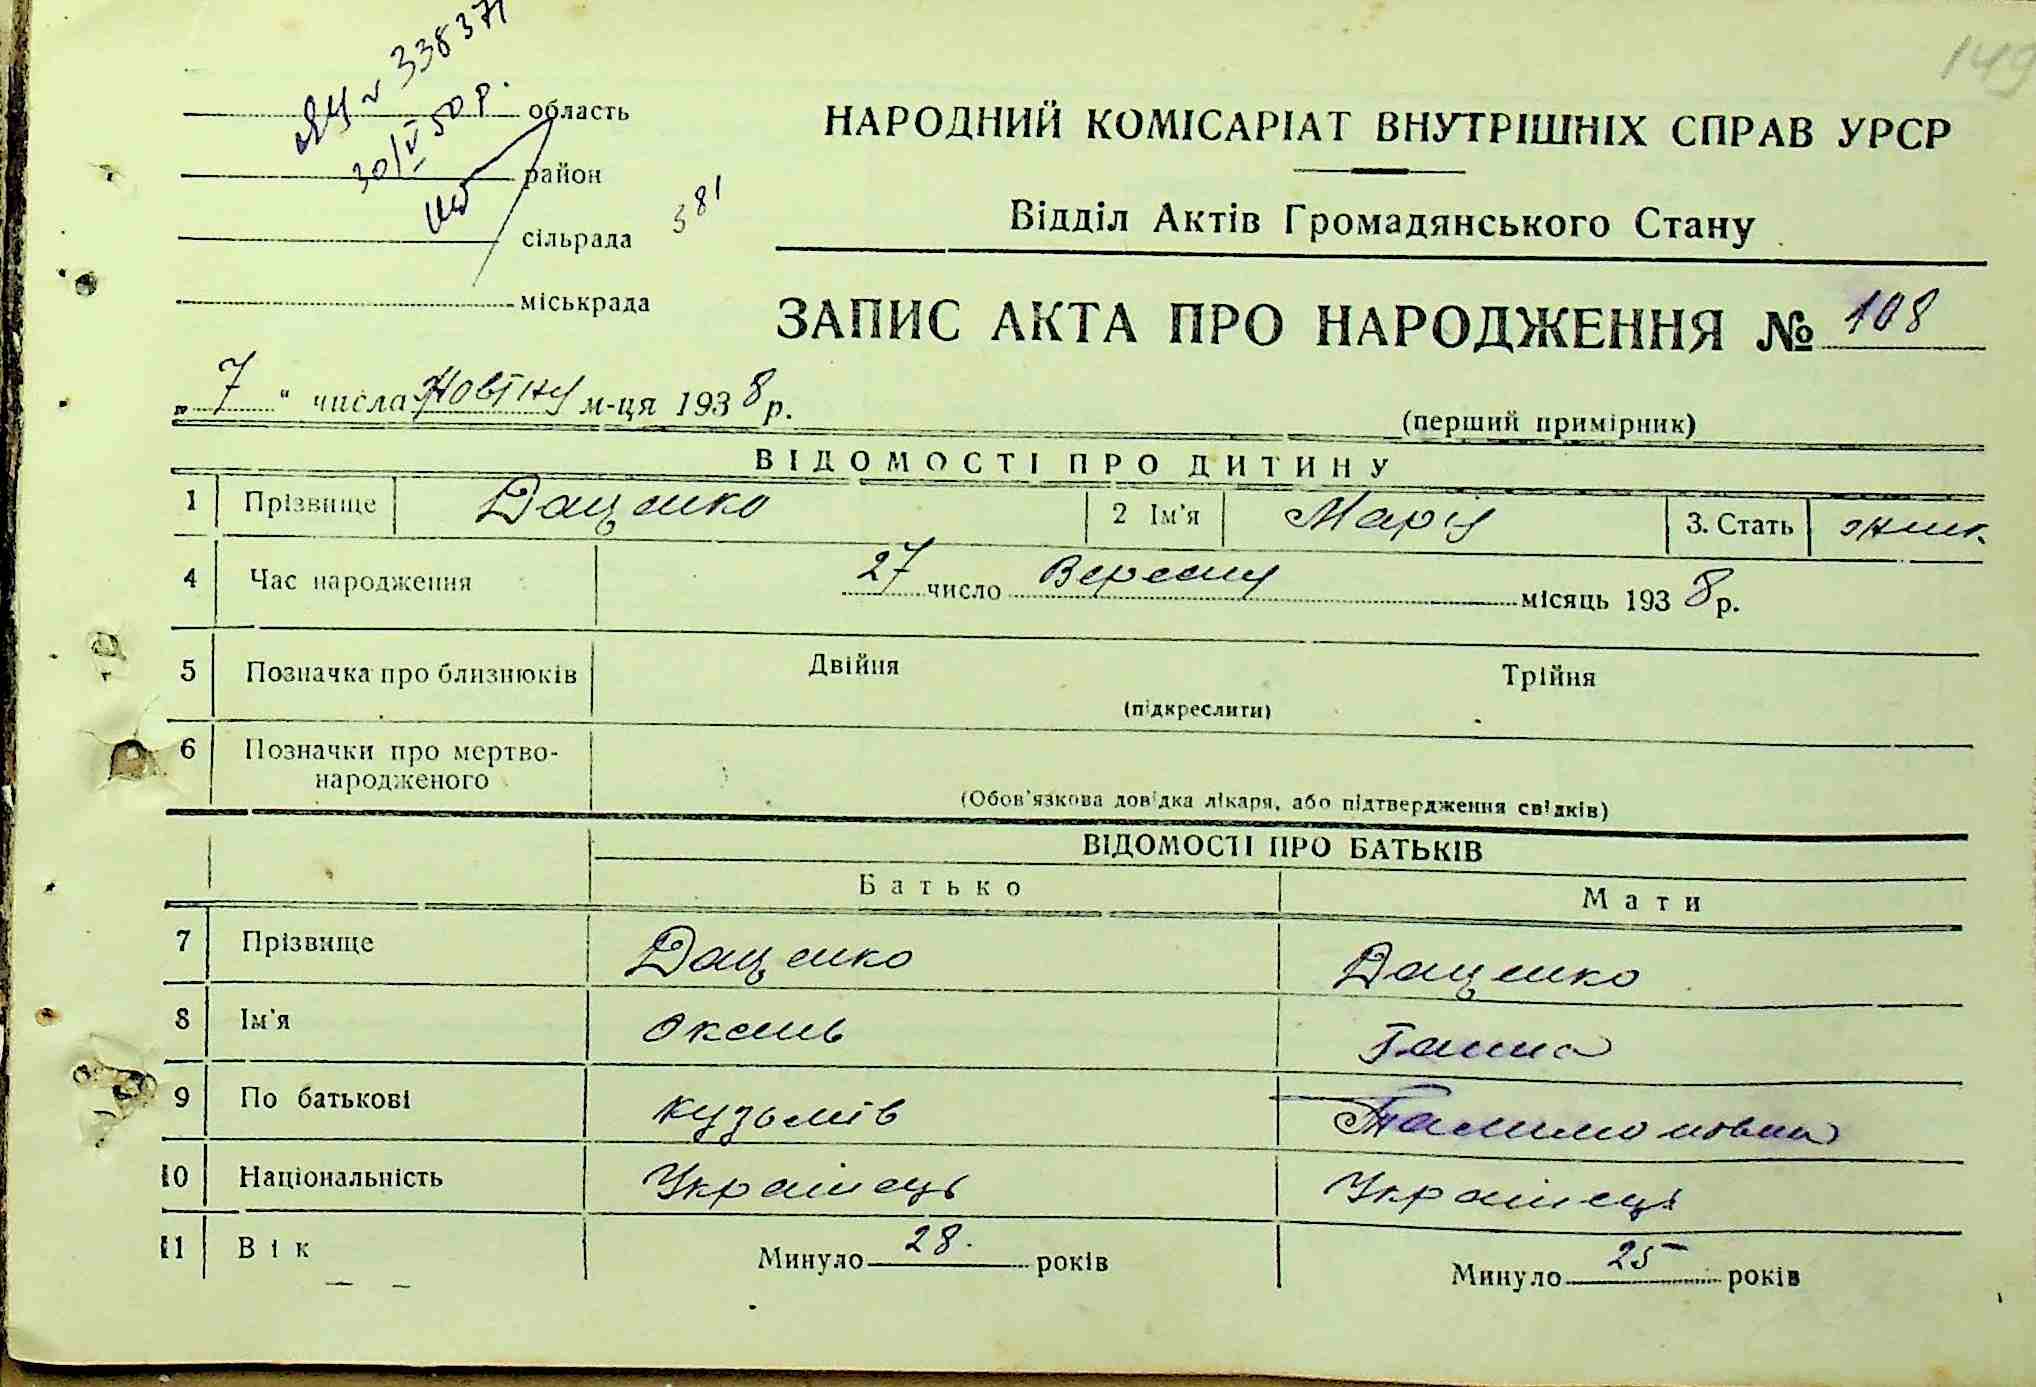 149
ЯЦ № 338371
область
30/V 50 р.
район
сільрада
381
міськрада
НАРОДНИЙ КОМІСАРІАТ ВНУТРІШНІХ СПРАВ УРСР
Відділ Актів Громадянського Стану
ЗАПИС АКТА ПРО НАРОДЖЕННЯ № 108
„ 7 “ числа Жовтня м-ця 1938 р.
(перший примірник)
ВІДОМОСТІ ПРО ДИТИНУ
1 Прізвище Даценко 2 Ім'я Марія 3. Стать жин.
4 Час народження 27 число Вересня місяць 1938 р.
5 Позначка про близнюків Двійня Трійня
(підкреслити)
6 Позначки про мертво-
народженого
(Обов'язкова довідка лікаря, або підтвердження свідків)
ВІДОМОСТІ ПРО БАТЬКІВ
Батько Мати
7 Прізвище Даценко Даценко
8 Ім'я Оксень Ганна
9 По батькові Кузьмів
10 Національність Українець Українця
11 Вік Минуло 28. років Минуло 25 років